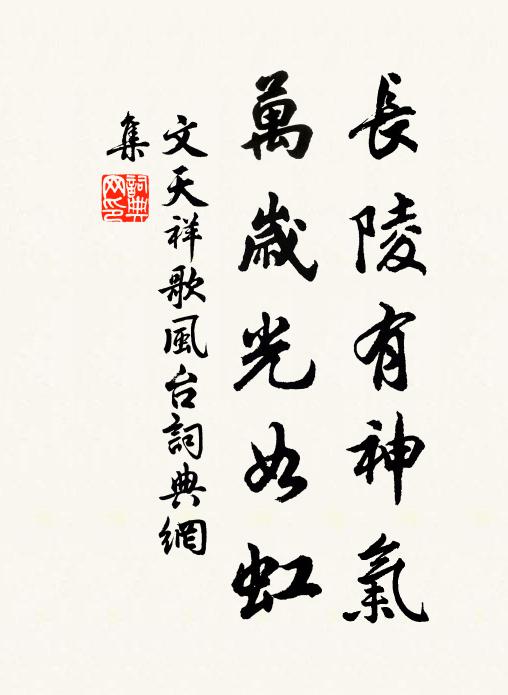 長陵有神氣
萬歲光如虹
文天祥歌風台詞典網
集
詞典
网印